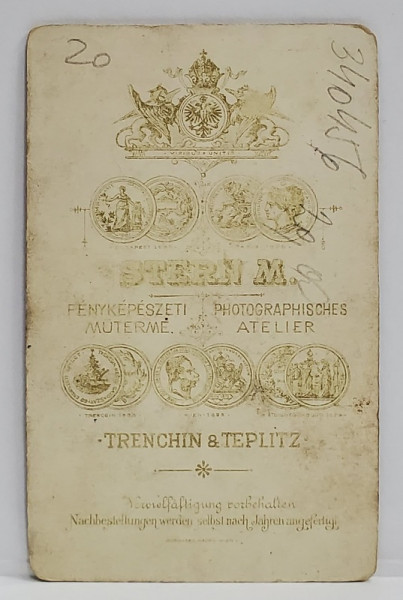 20
340456
VIRIBUS UNITIS
STERN M.
FÉNYKÉPÉSZETI MŰTERME.
PHOTOGRAPHISCHES ATELIER
TRENCHIN & TEPLITZ
Vervielfältigung vorbehalten
Nachbestellungen werden selbst nach Jahren angefertigt